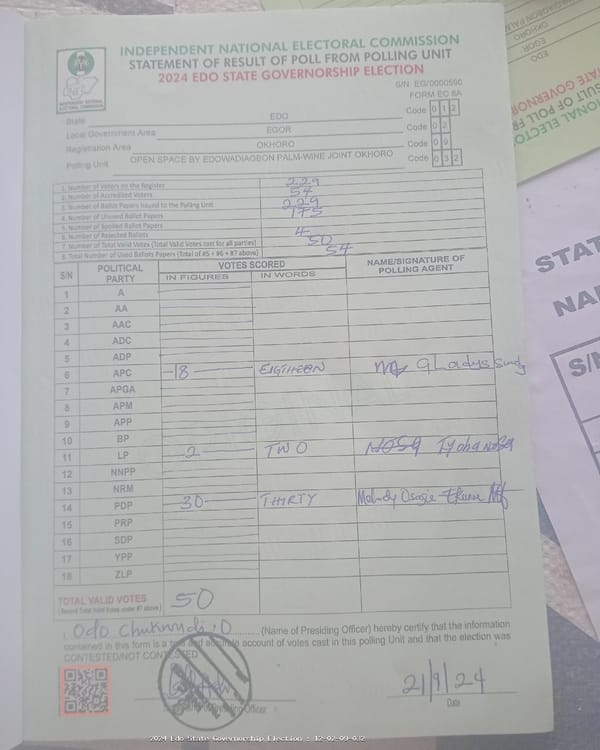 INDEPENDENT NATIONAL ELECTORAL COMMISSION
STATEMENT OF RESULT OF POLL FROM POLLING UNIT
2024 EDO STATE GOVERNORSHIP ELECTION
S/N: EG/0000590
FORM EC 8A
State EDO Code 0 1 2
Local Government Area EGOR Code 0 2
Registration Area OKHORO Code 0 9
Polling Unit OPEN SPACE BY EDOWADIAGBON PALM-WINE JOINT OKHORO Code 0 3 2
1. Number of Voters on the Register 229
2. Number of Accredited Voters 54
3. Number of Ballot Papers Issued to the Polling Unit 229
4. Number of Unused Ballot Papers 175
5. Number of Spoiled Ballot Papers
6. Number of Rejected Ballots 4
7. Number of Total Valid Votes (Total Valid Votes cast for all parties) 50
8. Total Number of Used Ballots Papers (Total of #5 + #6 + #7 above) 54
S/N POLITICAL PARTY VOTES SCORED NAME/SIGNATURE OF POLLING AGENT
IN FIGURES IN WORDS
1 A
2 AA
3 AAC
4 ADC
5 ADP
6 APC 18 EIGTHEEN Gladys
7 APGA
8 APM
9 APP
10 BP
11 LP 2 TWO NOSA
12 NNPP
13 NRM
14 PDP 30 THIRTY Osagie
15 PRP
16 SDP
17 YPP
18 ZLP
TOTAL VALID VOTES 50
(Record Total Valid Votes under #7 above)
I, Odo Chukwudi .O (Name of Presiding Officer) hereby certify that the information
contained in this form is a true and accurate account of votes cast in this polling Unit and that the election was
CONTESTED/NOT CONTESTED
21/9/24
Date
2024 Edo State Governorship Election : 12-02-09-032